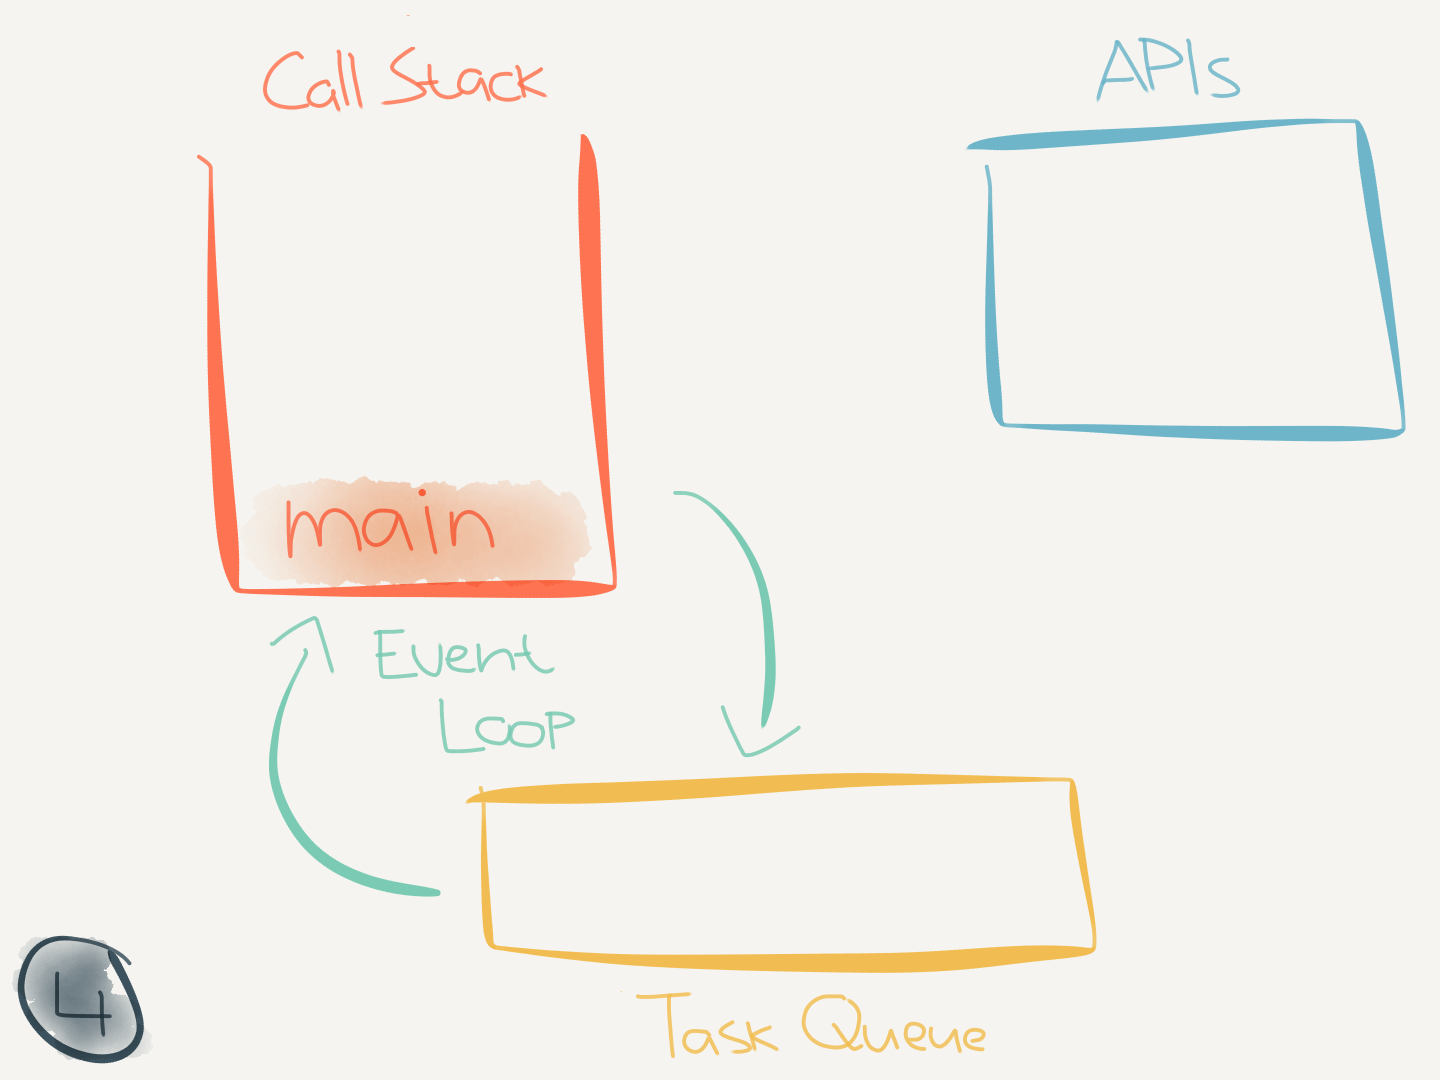 Call Stack
APIs
main
Event
Loop
Task Queue
4